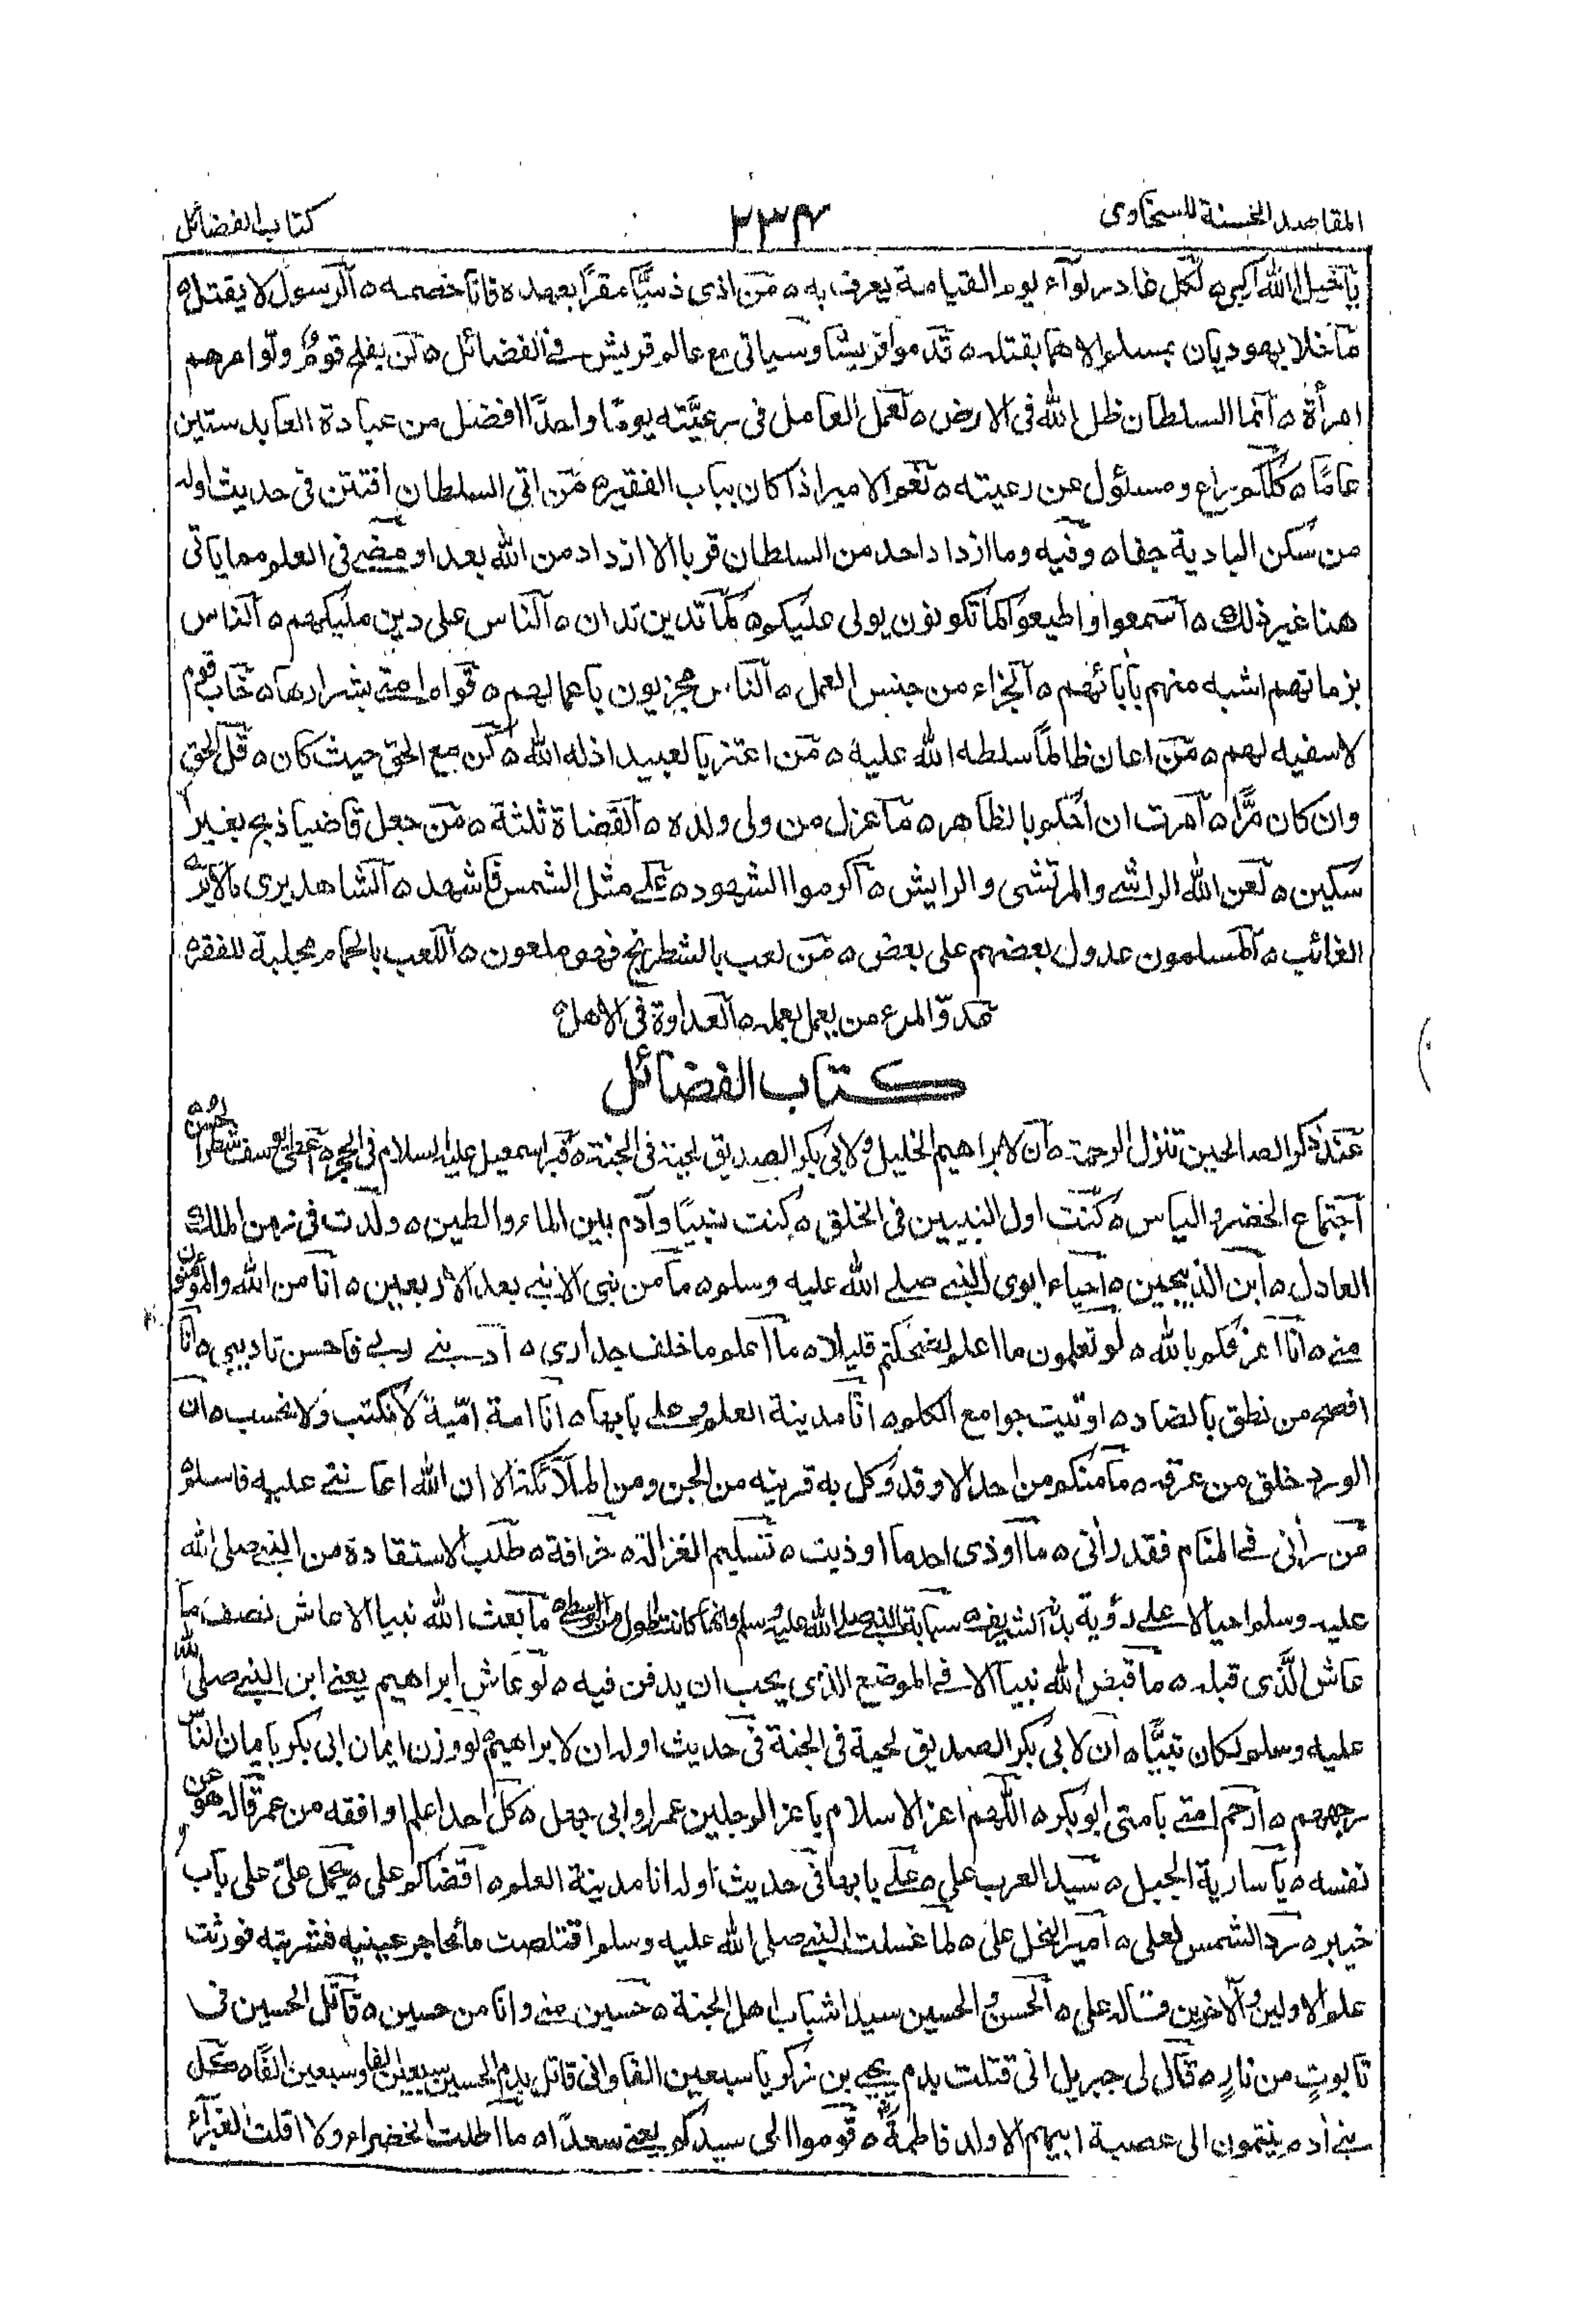 المقاصد الحسنة للسخاوى
٢٣٤
كتاب الفضائل
يا خيل الله اركبى ه لكل غادر لوآء يوم القيامة يعرف به ه من اذى ذميًّا مقرًّا بعهده فانا خصمه ه الرسول لا يقتل ه
ما خلا يهوديان بمسلم الا هما بقتله ه قدموا قريشا وسياتى مع عالم قريش فى الفضائل ه لن يفلح قوم ولّوا امرهم
امرأة ه انما السلطان ظل الله فى الارض ه لعمل العامل فى رعيّته يومًا واحدًا افضل من عبادة العابد ستين
عامًا ه كلكم راع ومسئول عن رعيته ه نعم الامير اذا كان بباب الفقير ه من اتى السلطان افتتن فى حديث اوله
من سكن البادية جفا ه وفيه وما ازداد احد من السلطان قربا الا ازداد من الله بعدا ومضى فى العلم مما ياتى
هنا غير ذلك ه اسمعوا واطيعوا كما تكونون يولى عليكم ه كما تدين تدان ه الناس على دين مليكهم ه الناس
بزمانهم اشبه منهم بأبائهم ه الجزاء من جنس العمل ه الناس مجزيون باعمالهم ه قوام امتى بشرارها ه خاب قوم
لا سفيه لهم ه من اعان ظالمًا سلطه الله عليه ه من اعتز بالعبيد اذله الله ه كن مع الحق حيث كان ه قل الحق
وان كان مرًّا ه امرت ان احكم بالظاهر ه ما عزل من ولى ولده ه القضاة ثلثة ه من جعل قاضيا ذبح بغير
سكين ه لعن الله الراشى والمرتشى والرايش ه اكرموا الشهود ه على مثل الشمس فاشهد ه الشاهد يرى مالا يره
الغائب ه المسلمون عدول بعضهم على بعض ه من لعب بالشطرنج فهو ملعون ه اللعب بالحمام مجلبة للفقر ه
عدوّ المرء من يعمل بعمله ه العداوة فى الاهل ه
كتاب الفضائل
عند ذكر الصالحين تنزل الرحمة ه ان لابراهيم الخليل ولابى بكر الصديق لحية فى الجنة ه قبر اسمعيل عليه السلام فى الحجر ه اعطى يوسف شطر الحسن ه
اجتماع الخضر والياس ه كنت اول النبيين فى الخلق ه كنت نبيًا وآدم بين الماء والطين ه ولدت فى زمن الملك
العادل ه ابن الذبيحين ه احياء ابوى النبى صلى الله عليه وسلم ه ما من نبى الا نبى بعد الاربعين ه انا من الله والمؤمنون
منى ه انا اعرفكم بالله ه لو تعلمون ما اعلم لضحكتم قليلا ه ما اعلم ما خلف جدارى ه ادبنى ربى فاحسن تاديبى ه انا
افصح من نطق بالضاد ه اوتيت جوامع الكلم ه انا مدينة العلم وعلى بابها ه انا امة امّية لا نكتب ولا نحسب ه ان
الورد خلق من عرقه ه ما منكم من احد الا وقد وكل به قرينه من الجن ومن الملآئكة الا ان الله اعاننى عليه فاسلم ه
من رأنى فى المنام فقد رأنى ه ما اوذى احد ما اوذيت ه تسليم الغزالة ه خرافة ه طلب الاستقادة من النبى صلى الله
عليه وسلم احيالا على رؤية بدنه الشريف ه سبابة النبى صلى الله عليه وسلم وانها كانت اطول من الوسطى ه ما بعث الله نبيا الا عاش نصف ما
عاش الّذى قبله ه ما قبض الله نبيا الا فى الموضع الذى يحب ان يدفن فيه ه لو عاش ابراهيم يعنى ابن النبى صلى الله
عليه وسلم لكان نبيًّا ه ان لابى بكر الصديق لحية فى الجنة فى حديث اوله ان لابراهيم ه لو وزن ايمان ابى بكر بايمان الناس
رجحهم ه ارحم امتى بامتى ابو بكر ه اللهم اعز الاسلام باعز الرجلين عمر او ابى جهل ه كل احد اعلم او افقه من عمر قاله هو عن
نفسه ه يا سارية الجبل ه سيد العرب على ه على بابها فى حديث اوله انا مدينة العلم ه اقضاكم على ه يحمل علىّ على باب
خيبر ه رد الشمس لعلى ه امير النحل على ه لما غسلت النبى صلى الله عليه وسلم اقتلصت ماء محاجر عينيه فشربته فورثت
علم الاولين والآخرين قاله على ه الحسن والحسين سيدا شباب اهل الجنة ه حسين منى وانا من حسين ه قاتل الحسين فى
تابوتٍ من نارٍ ه قال لى جبريل انى قتلت بدم يحيى بن زكريا سبعين الفا وانى قاتل بدم الحسين سبعين الفا وسبعين الفًا ه كل
بنى أدم ينتمون الى عصبة ابيهم الا ولد فاطمة ه قوموا الى سيدكم يعنى سعدًا ه ما اظلت الخضراء ولا اقلت الغبرآء